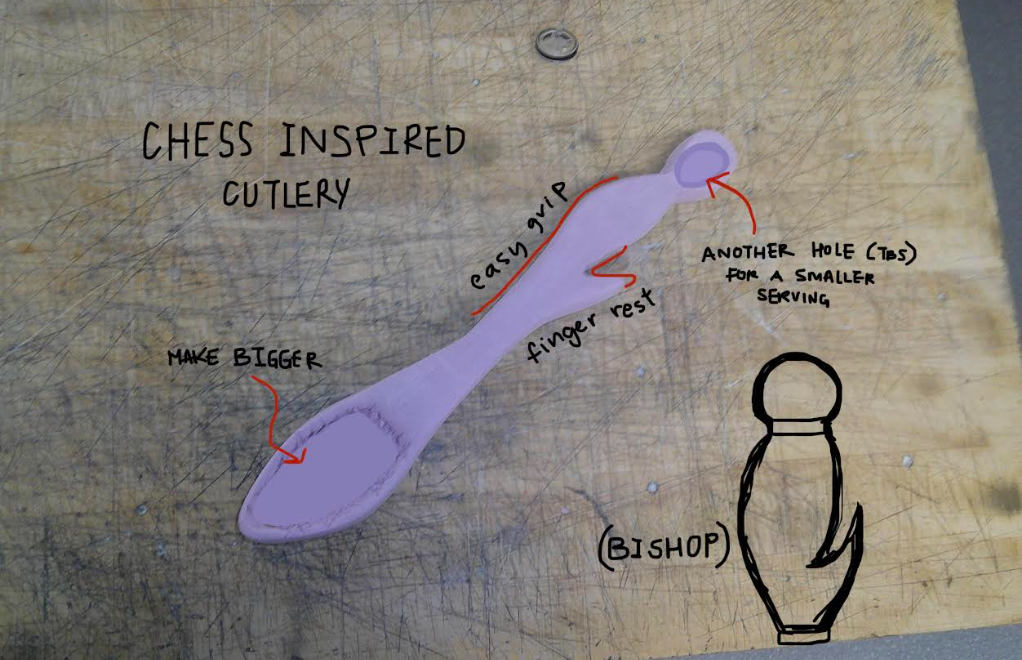 CHESS INSPIRED
CUTLERY
easy grip
ANOTHER HOLE (TBS)
FOR A SMALLER
SERVING
finger rest
MAKE BIGGER
(BISHOP)